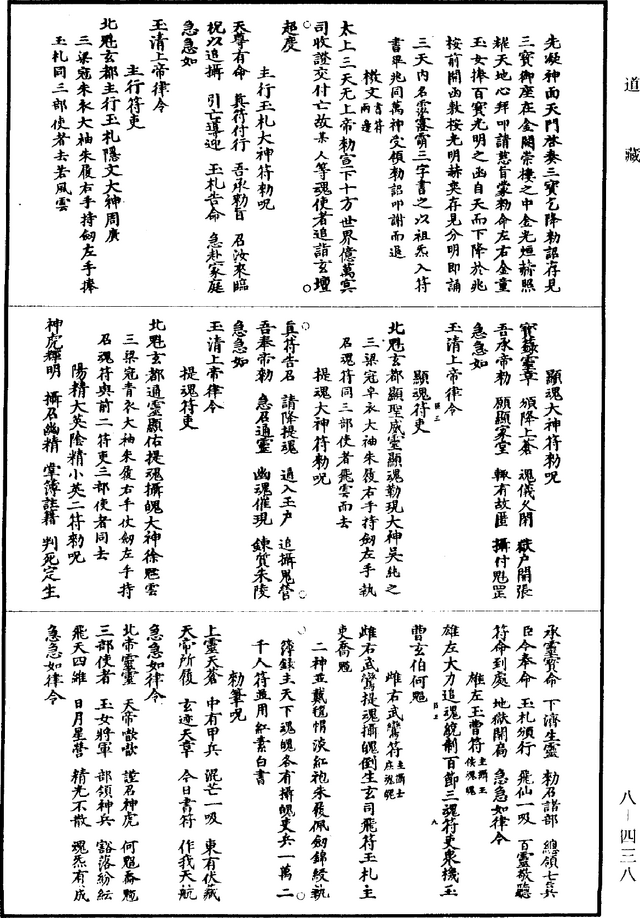 道藏
先凝神面天門啓奏三寶乞降勑詔存見
三寶御座在金闕崇樓之中金光烜赫照
耀天地心拜叩請慈旨蒙勑命左右金童
玉女捧百寶光明之函自天而下降於兆
桉前開函敕桉光明赫奕存見分明即誦
三天內名霐䨴霫三字書之以祖炁入符
書畢兆同萬神受領勑詔叩謝而退
檄文書符兩邊
太上三天無上帝勑宣下十方世界億萬冥
司收證交付亡故某人等魂使者追詣玄壇
超度
主行玉札大神符勑呪
天尊有命 眞符付行 吾承勑旨 召汝來臨
祝以追攝 引亡導迎 玉札告命 急赴家庭
急急如
玉清上帝律令
主行符吏
北魁玄都主行玉札隱文大神周廣
三梁冠朱衣大袖朱履右手持劒左手捧
玉札同三部使者去若風雲
顯魂大神符勑呪
寶籙靈章 頒降上蒼 魂儀火閉 嶽戶開張
吾承帝勑 願顯家堂 輒有故匿 攝付魁罡
急急如
玉清上帝律令
顯魂符吏
北魁玄都顯聖威靈顯魂勒現大神吳純之
三梁冠皁衣大袖朱履右手持劒左手執
召魂符同三部使者飛雲而去
提魂大神符勑呪
眞符告召 請降提魂 過入玉戶 追攝鬼營
吾奉帝勑 急召通靈 幽魂催現 鍊質朱陵
急急如
玉清上帝律令
提魂符吏
北魁玄都通靈顯佑提魂攝魄大神徐魁雲
三梁冠青衣大袖朱履右手仗劒左手持
召魂符與前二符吏三部使者同去
陽精大英陰精小英二符勑呪
神虎輝明 攝召幽精 掌簿註籍 判死定生
承靈寶命 下濟生靈 勑召諸部 總領七兵
臣今奉命 玉札頒行 飛仙一吸 百靈敬聽
符命到處 地獄開扃 急急如律令
雄左玉曹符
雄左大力追魂統制百節三魂符吏衆機玉
曹玄伯何魁
雌右武鸞符
雌右武鸞提魂攝魄倒生玄司飛符玉札主
吏喬魁
二神並戴㲲帽淡紅袍朱履佩劒錦絞執
簿録主天下魂魄各有攝魄吏兵一萬二
千人符並用紅素白書
勑筆呪
上靈天蒼 中有甲兵 混芒一吸 東有伏藏
天帝所履 玄迹天章 今日書符 作我天航
急急如律令
北帝靈靈 天帝歆歆 謹召神虎 何魁喬魁
三部使者 玉女將軍 部領神兵 豁落紛紜
飛天四維 日月星營 精光不散 魂炁有成
急急如律令
八－四三八